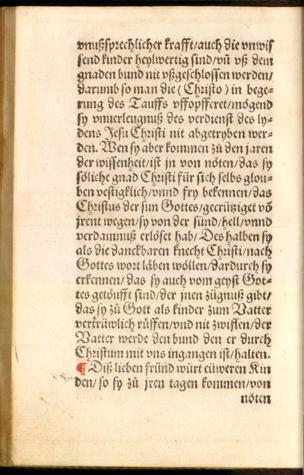 vnußsprechlicher krafft/auch die vnwis
send kinder heylwertig sind/vn̄ vß dem
gnaden bund nit vßgeschlossen werden/
darumb so man die (Christo) in bege-
rung des Tauffs vffopfferet/mögend
sy vnuerleugnuß des verdienst des ly-
dens Jesu Christi nit abgetryben wer-
den. Wen sy aber kommen zů den jaren
der wissenheit/ist jn von nöten/das sy
söliche gnad Christi für sich selbs glou-
ben vestigklich/vnnd fry bekennen/das
Christus der sun Gottes/gecrütziget vō
jrent wegen/sy von der sünd/hell/vnnd
verdamnuß erlöset hab/ Des halben sy
als die danckbaren knecht Christi/nach
Gottes wort läben wöllen/dardurch sy
erkennen/ das sy auch vom geyst Got-
tes getöufft sind/der jnen zügnuß gibt/
das sy zů Gott als kinder zum Vatter
vertrüwlich rüffen/vnd nit zwiflen/der
Vatter werde den bund den er durch
Christum mit vns ingangen ist/halten.
¶ Diß lieben fründ würt eüweren Kin
den/so sy zů jren tagen kommen/von
nöten